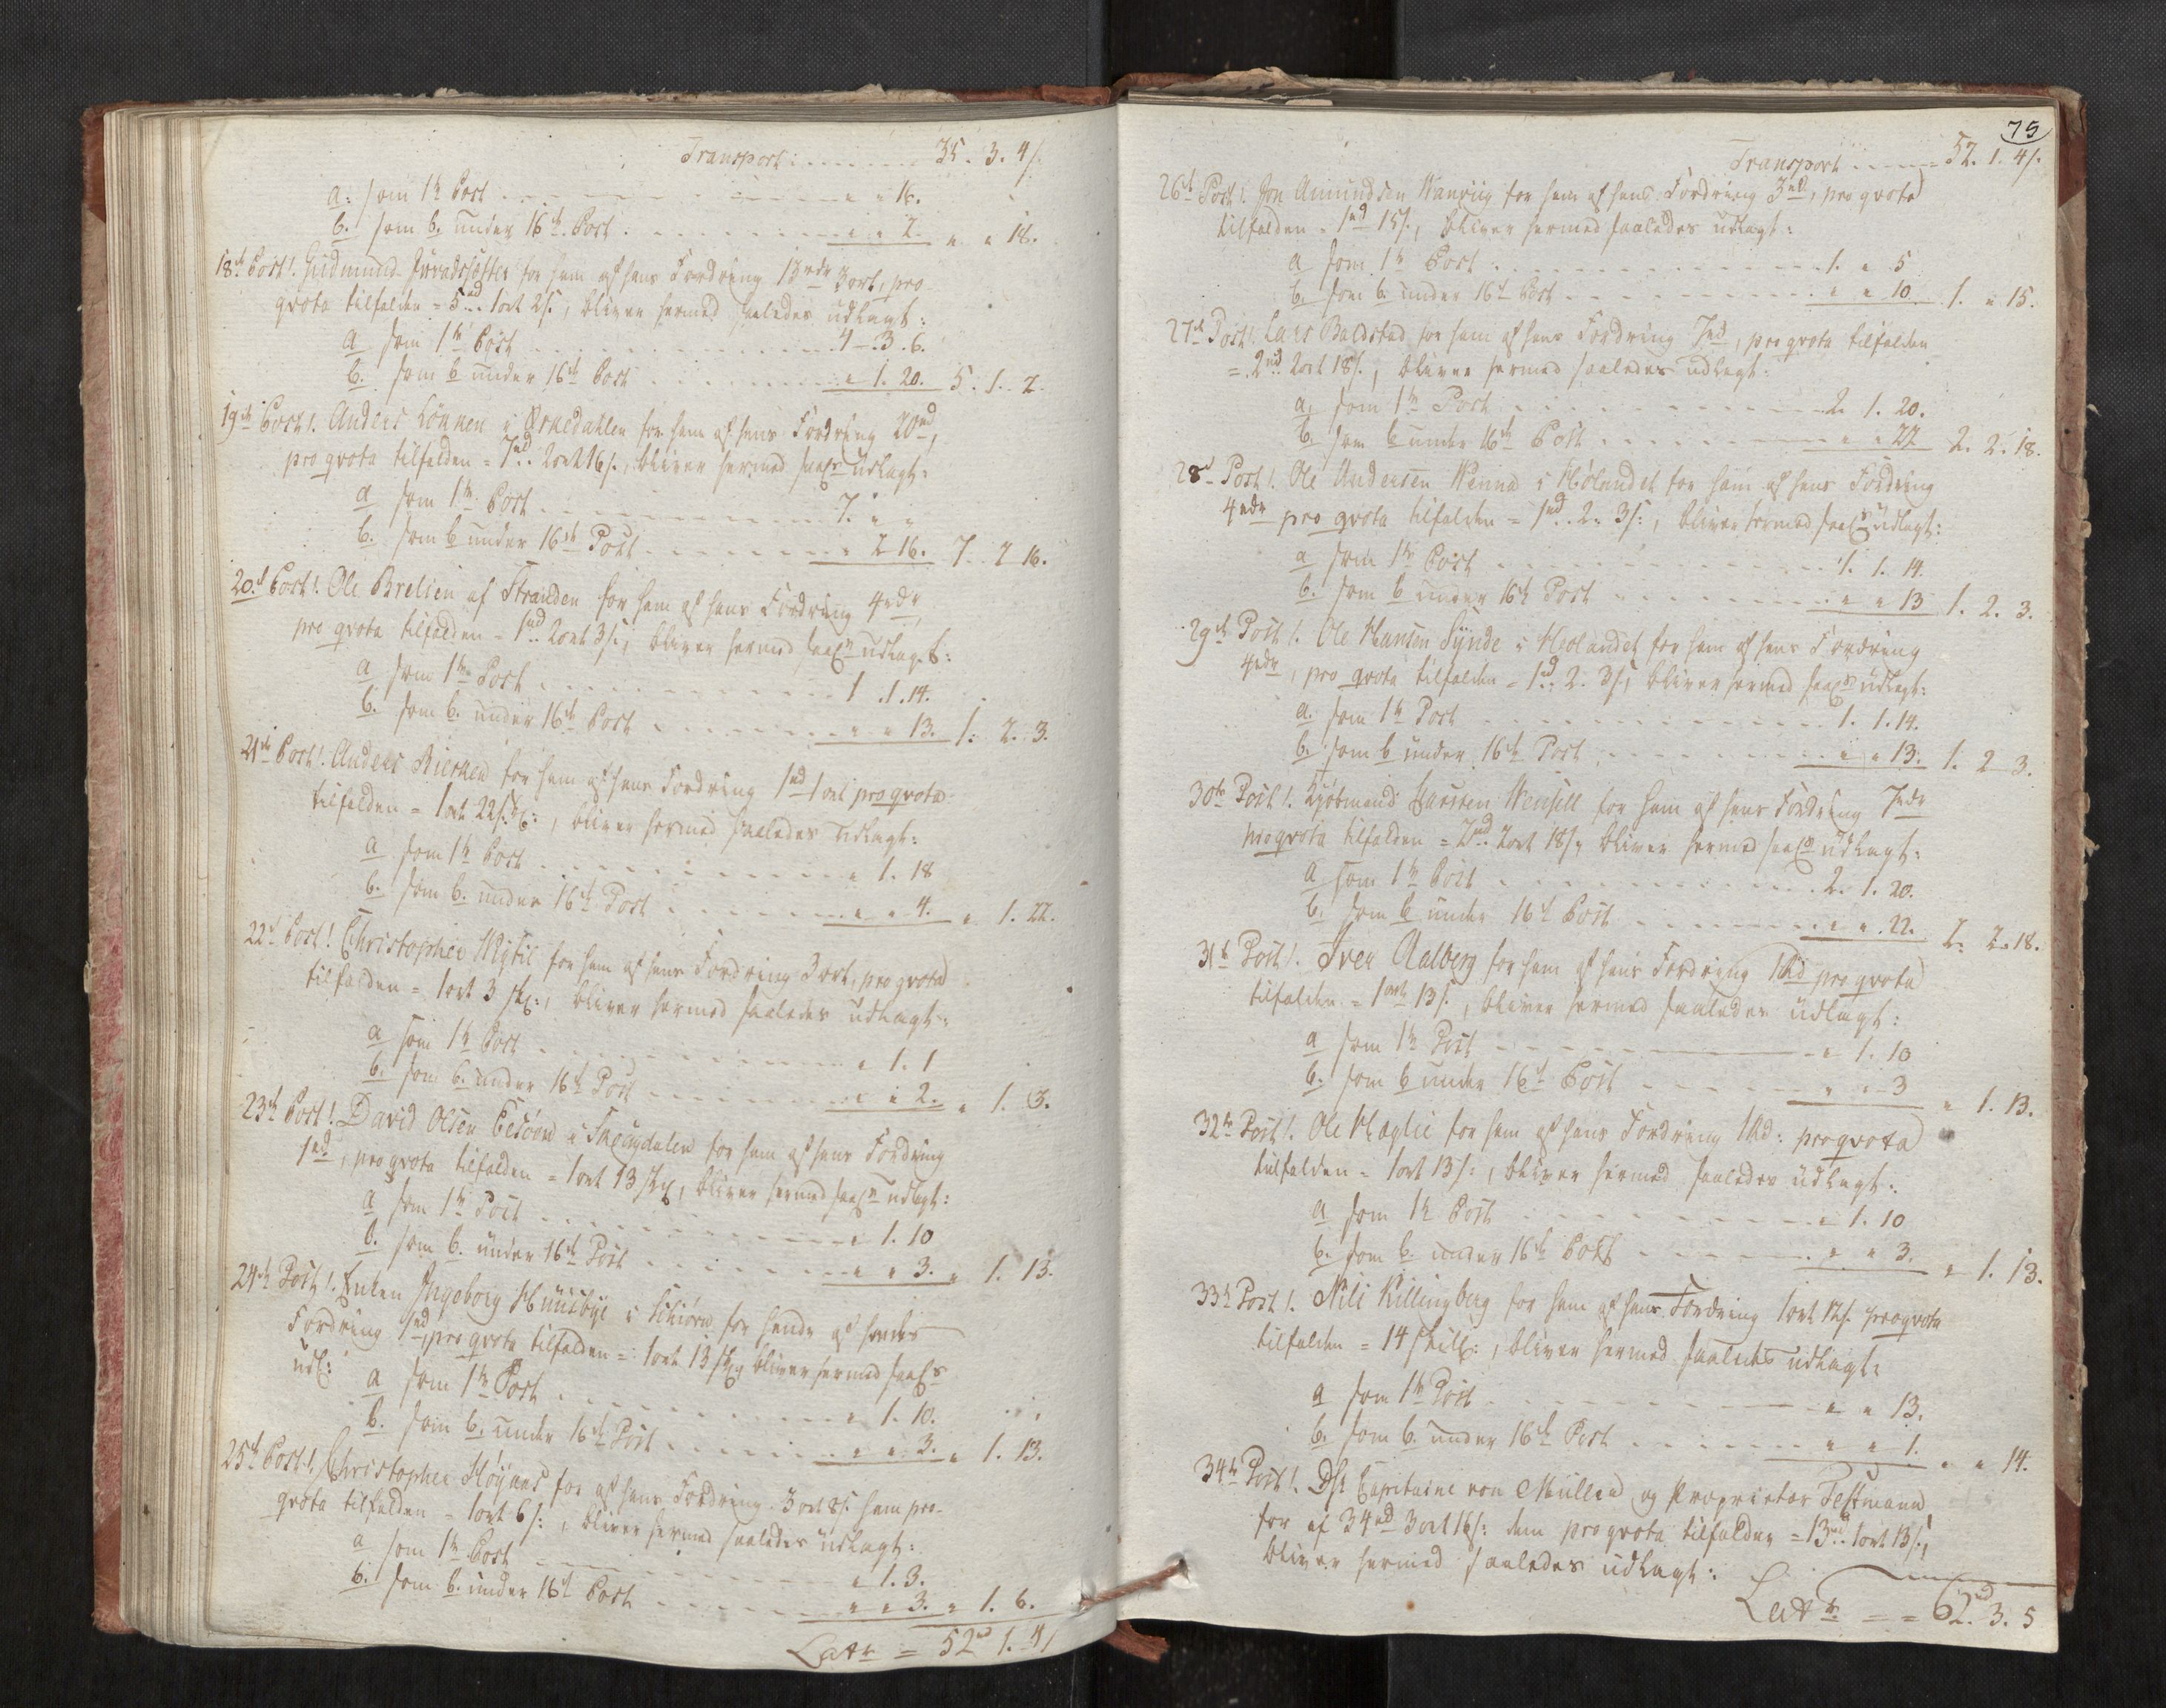 Transport: 35. 3. 4/.
a. som 1te Post " " 16.
b. som b. under 16de Post. " " 2. " " 18.
18de Post! Gudmund for ham af hans Fordring 13rdr 3ort, pro
qvota tilfalden = 5rd. 1ort 2/., bliver hermed saaledes udlagt:
a som 1te Post 4. 3. 6.
b. som b under 16de Post " 1. 20. 5. 1. 2.
19de Post!. Anders Lönnen i Orkedahlen for ham af hans Fordring 20rd,
pro qvota tilfalden = 7rd. 2ort 16/., bliver hermed saal: udlagt:
a som 1te Post 7. " "
b. som b under 16de Post " 2 16. 7. 2 16.
20de Post!. Ole Brelien af Stranden for ham af hans Fordring 4rdr
pro qvota tilfalden = 1rd. 2ort 3/., bliver hermed saal: udlagt:
a som 1te Post 1. 1. 14.
b. som b. under 16de Post " " 13. 1. 2. 3.
21de Post!. Anders for ham af hans Fordring 1rd 1ort pro qvota
tilfalden = 1ort 22/., bliver hermed saaledes udlagt:
a som 1te Post " 1. 18
b. som b. under 16de Post " " 4. " 1. 22.
22de Post! Christopher for ham af hans Fordring 3ort, pro qvota
tilfalden = 1ort 3 sk:, bliver hermed saaledes udlagt:
a som 1te Post " 1. 1
b. som b. under 16de Post " " 2. " 1. 3.
23de Post! David Olsen i for ham af hans Fordring
1rd, pro qvota tilfalden = 1ort 13 sk:, bliver hermed saal: udlagt:
a som 1te Post " 1. 10
b. som b. under 16de Post " " 3. " 1. 13.
24de Post!. Enken Ingeborg Huusbye i for hende af hendes
Fordring 1rd, pro qvota tilfalden = 1ort 13 sk:, bliver hermed saal:
udl: a som 1te Post " 1. 10.
b. som b. under 16de Post " " 3. " 1. 13.
25de Post!. Christopher for af hans Fordring 3ort 8/. ham pro
qvota tilfalden = 1ort 6/:, bliver hermed saaledes udlagt:
a som 1te Post " 1. 3.
b. som b. under 16de Post " " 3. " 1. 6.
Latr = 52rd 1. 4/
75
Transport 52. 1. 4/.
26de Post!. Jon Amundsen for ham af hans Fordring 3rd, pro qvota
tilfalden = 1rd 15/., bliver hermed saaledes udlagt:
a som 1te Post 1. " 5
b. som b. under 16de Post " " 10 1. " 15.
27de Post!. Lars Baldstad for ham af hans Fordring 7rd, pro qvota tilfalden
= 2rd. 2ort 18/., bliver hermed saaledes udlagt:
a. som 1te Post 2. 1. 20.
b. som b under 16de Post " " 22 2. 2. 18.
28de Post!. Ole Andersen i Hölandet for ham af hans Fordring
4rdr pro qvota tilfalden = 1rd. 2. 3/:, bliver hermed saal: udlagt:
a som 1te Post 1. 1. 14.
b. som b under 16de Post " " 13 1. 2. 3.
29de Post!. Ole Hansen Synde i Hölandet for ham af hans Fordring
4rdr, pro qvota tilfalden = 1rd. 2. 3/:, bliver hermed saal: udlagt:
a. som 1te Post 1. 1. 14.
b. som b under 16de Post " " 13. 1. 2 3.
30te Post!. Kjöbmand Karsten Wensell for ham af hans Fordring 7rdr
pro qvota tilfalden = 2rd. 2ort 18/: bliver hermed saal: udlagt:
a som 1te Post 2. 1. 20.
b. som b under 16de Post " " 22. 2. 2. 18.
31te Post!. Iver Aalberg for ham af hans Fordring 1Rd pro qvota
tilfalden = 1ort 13/., bliver hermed saaledes udlagt:
a som 1te Post " 1. 10
b. som b under 16de Post " " 3 " 1. 13.
32te Post!. Ole for ham af hans Fordring 1Rd: pro qvota
tilfalden = 1ort 13/:, bliver hermed saaledes udlagt:
a som 1te Post " 1. 10
b. som b. under 16de Post " " 3. " 1. 13.
33te Post!. Nils Killingberg for ham af hans Fordring 1ort 12/. pro qvota
tilfalden = 14 skill:, bliver hermed saaledes udlagt:
a som 1te Post " " 13.
b. som b. under 16de Post " " 1. " " 14.
34te Post!. Dhr Capitaine von Müller og Proprietær Testmann
for af 34rd 3ort 16/: dem pro qvota tilfalder = 13rd. 1ort 13/.,
bliver hermed saaledes udlagt:
Latr = 62rd. 3. 5